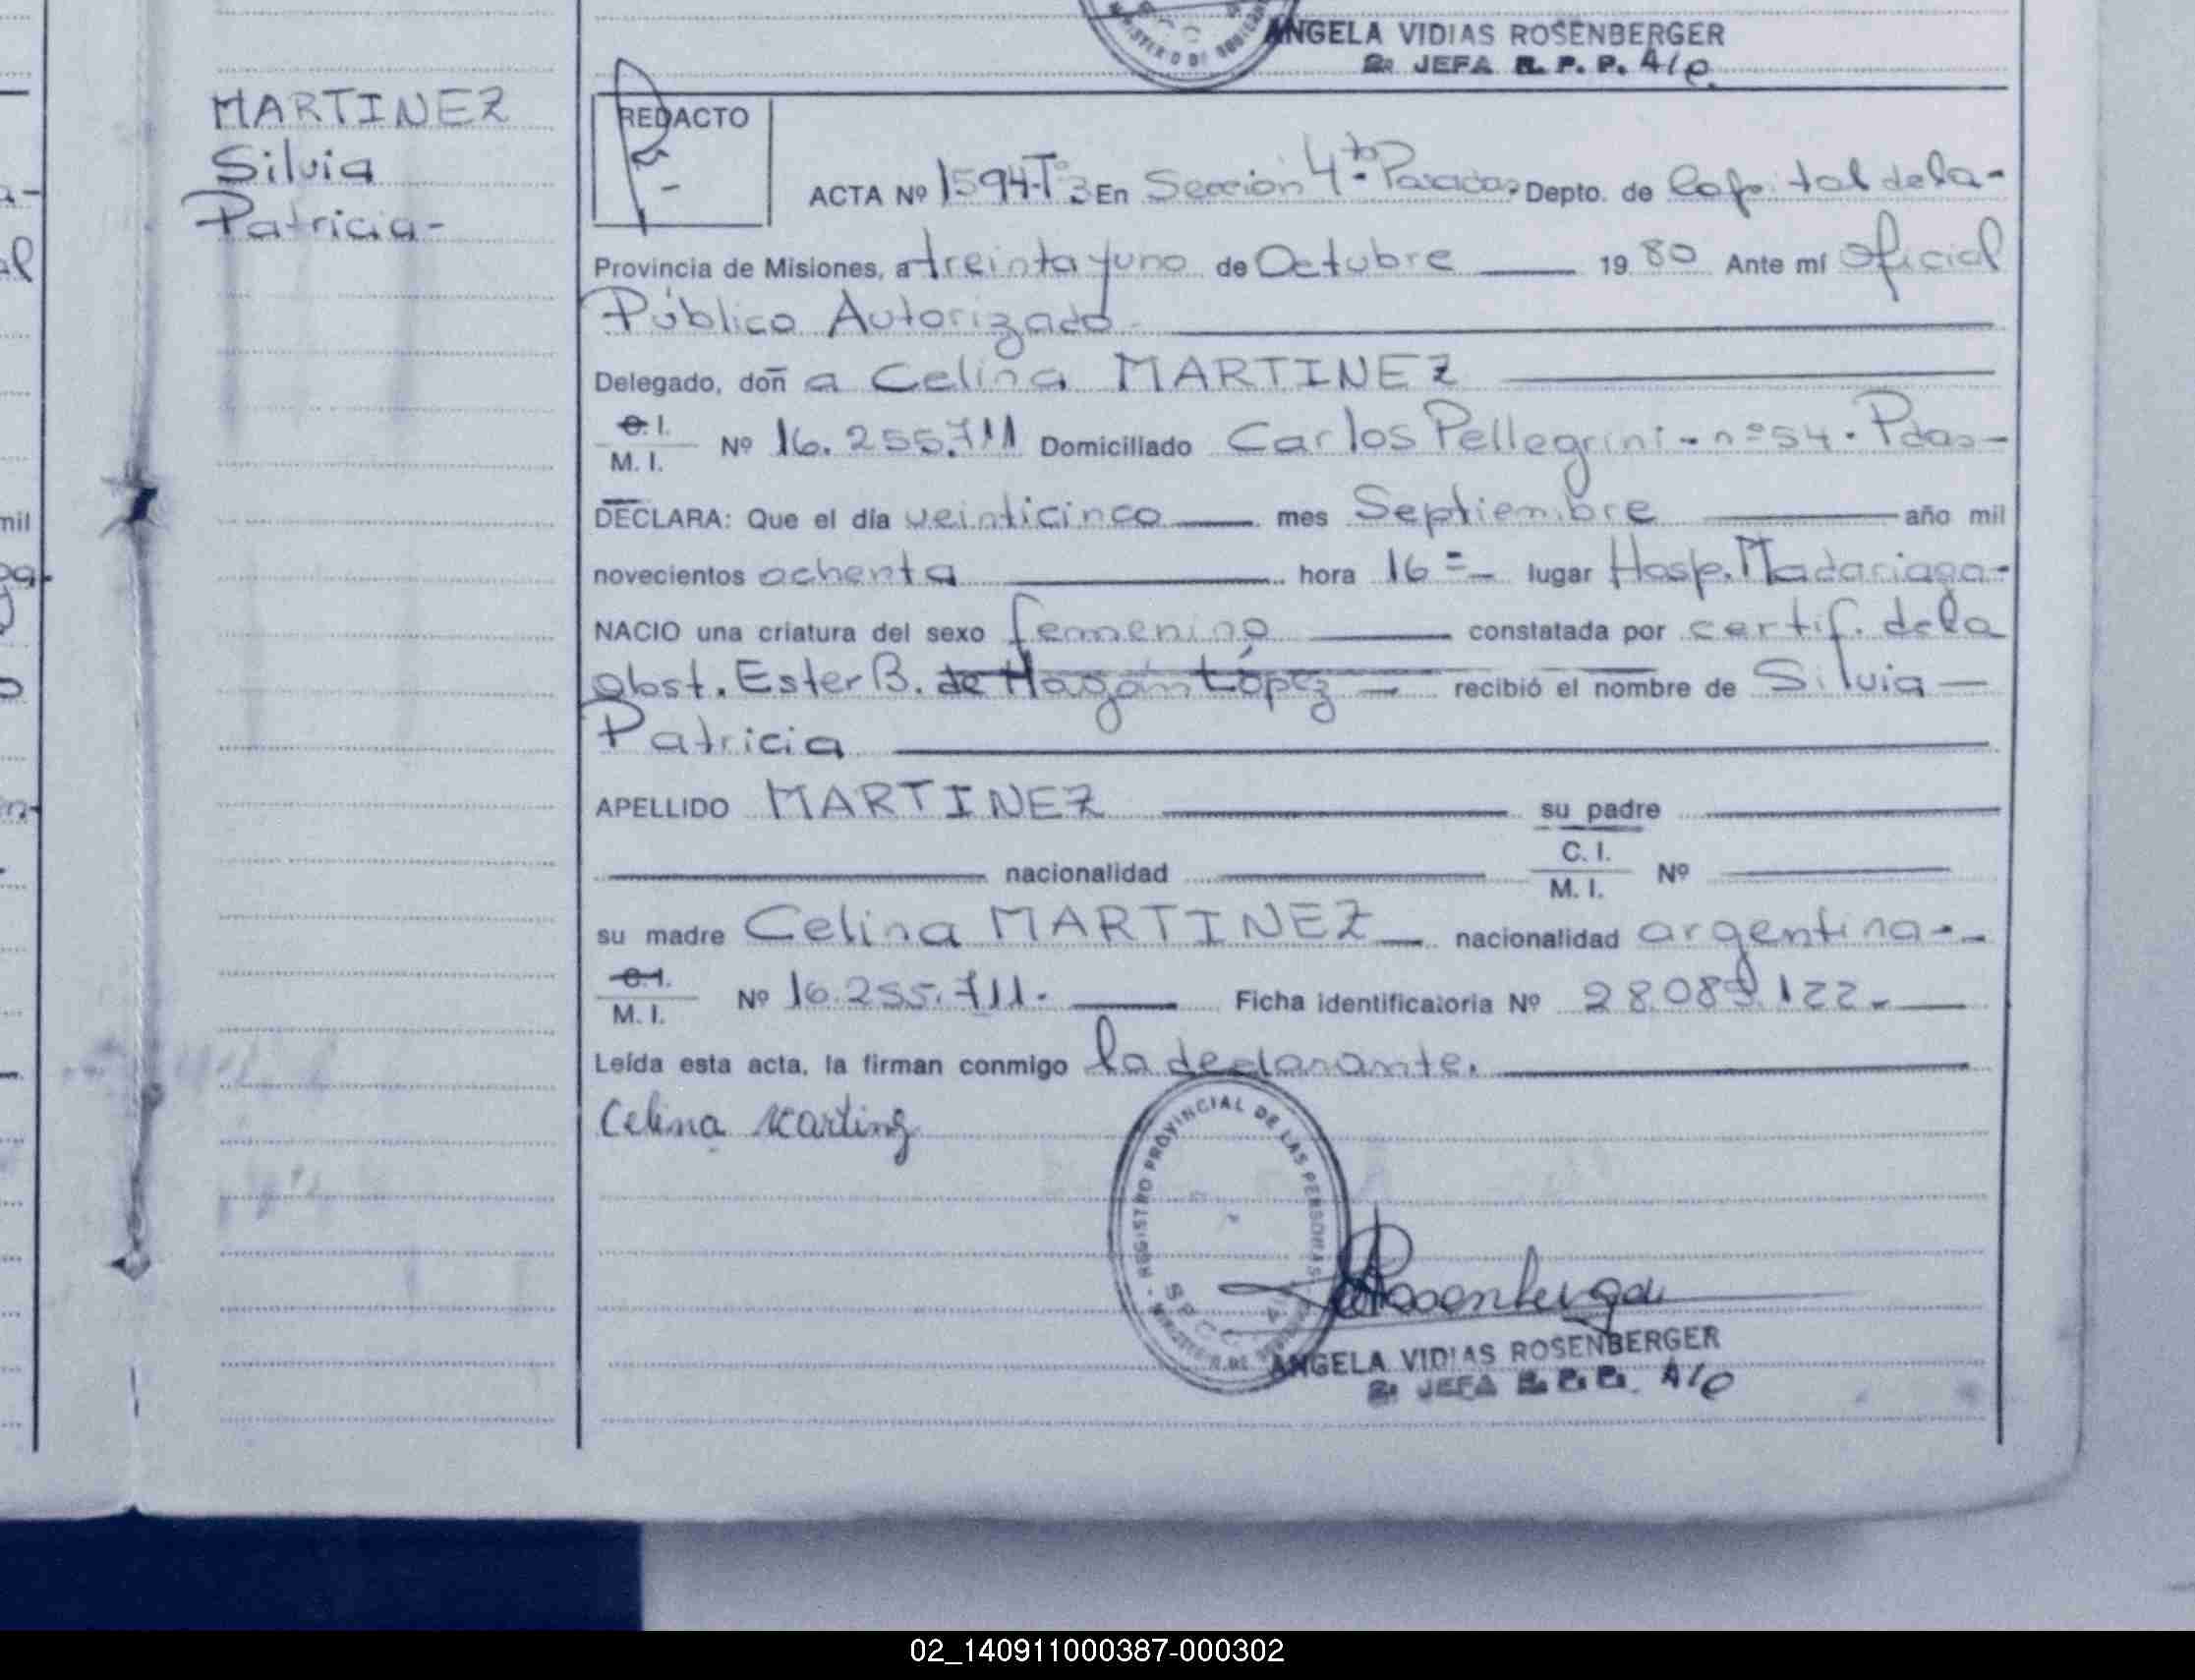 ANGELA VIDIAS ROSENBERGER
2a JEFA R. P. P. A/C.
MARTINEZ
Silvia
Patricia-
REDACTO
ACTA Nº 1594-Tº3 En Sección 4ta Posadas- Depto. de Capital de la-
Provincia de Misiones, a treinta y uno de Octubre 1980 Ante mí Oficial
Público Autorizado
Delegado, doñ a Celina MARTINEZ
C. I.
M. I. Nº 16.255.711 Domiciliado Carlos Pellegrini - nº 54 - Pdas-
DECLARA: Que el día veinticinco mes Septiembre año mil
novecientos ochenta hora 16 = lugar Hosp. Madariaga-
NACIO una criatura del sexo femenino constatada por certif. de la
obst. Ester B. de López recibió el nombre de Silvia
Patricia
APELLIDO MARTINEZ su padre
nacionalidad C. I.
M. I. Nº
su madre Celina MARTINEZ nacionalidad argentina-
C. I.
M. I. Nº 16.255.711. Ficha identificatoria Nº 28.089.122-
Leída esta acta, la firman conmigo la declarante.
Celina Martinez
REGISTRO PROVINCIAL DE LAS PERSONAS
Rosenberger
ANGELA VIDIAS ROSENBERGER
2a JEFA R. P. P. A/C
02_140911000387-000302